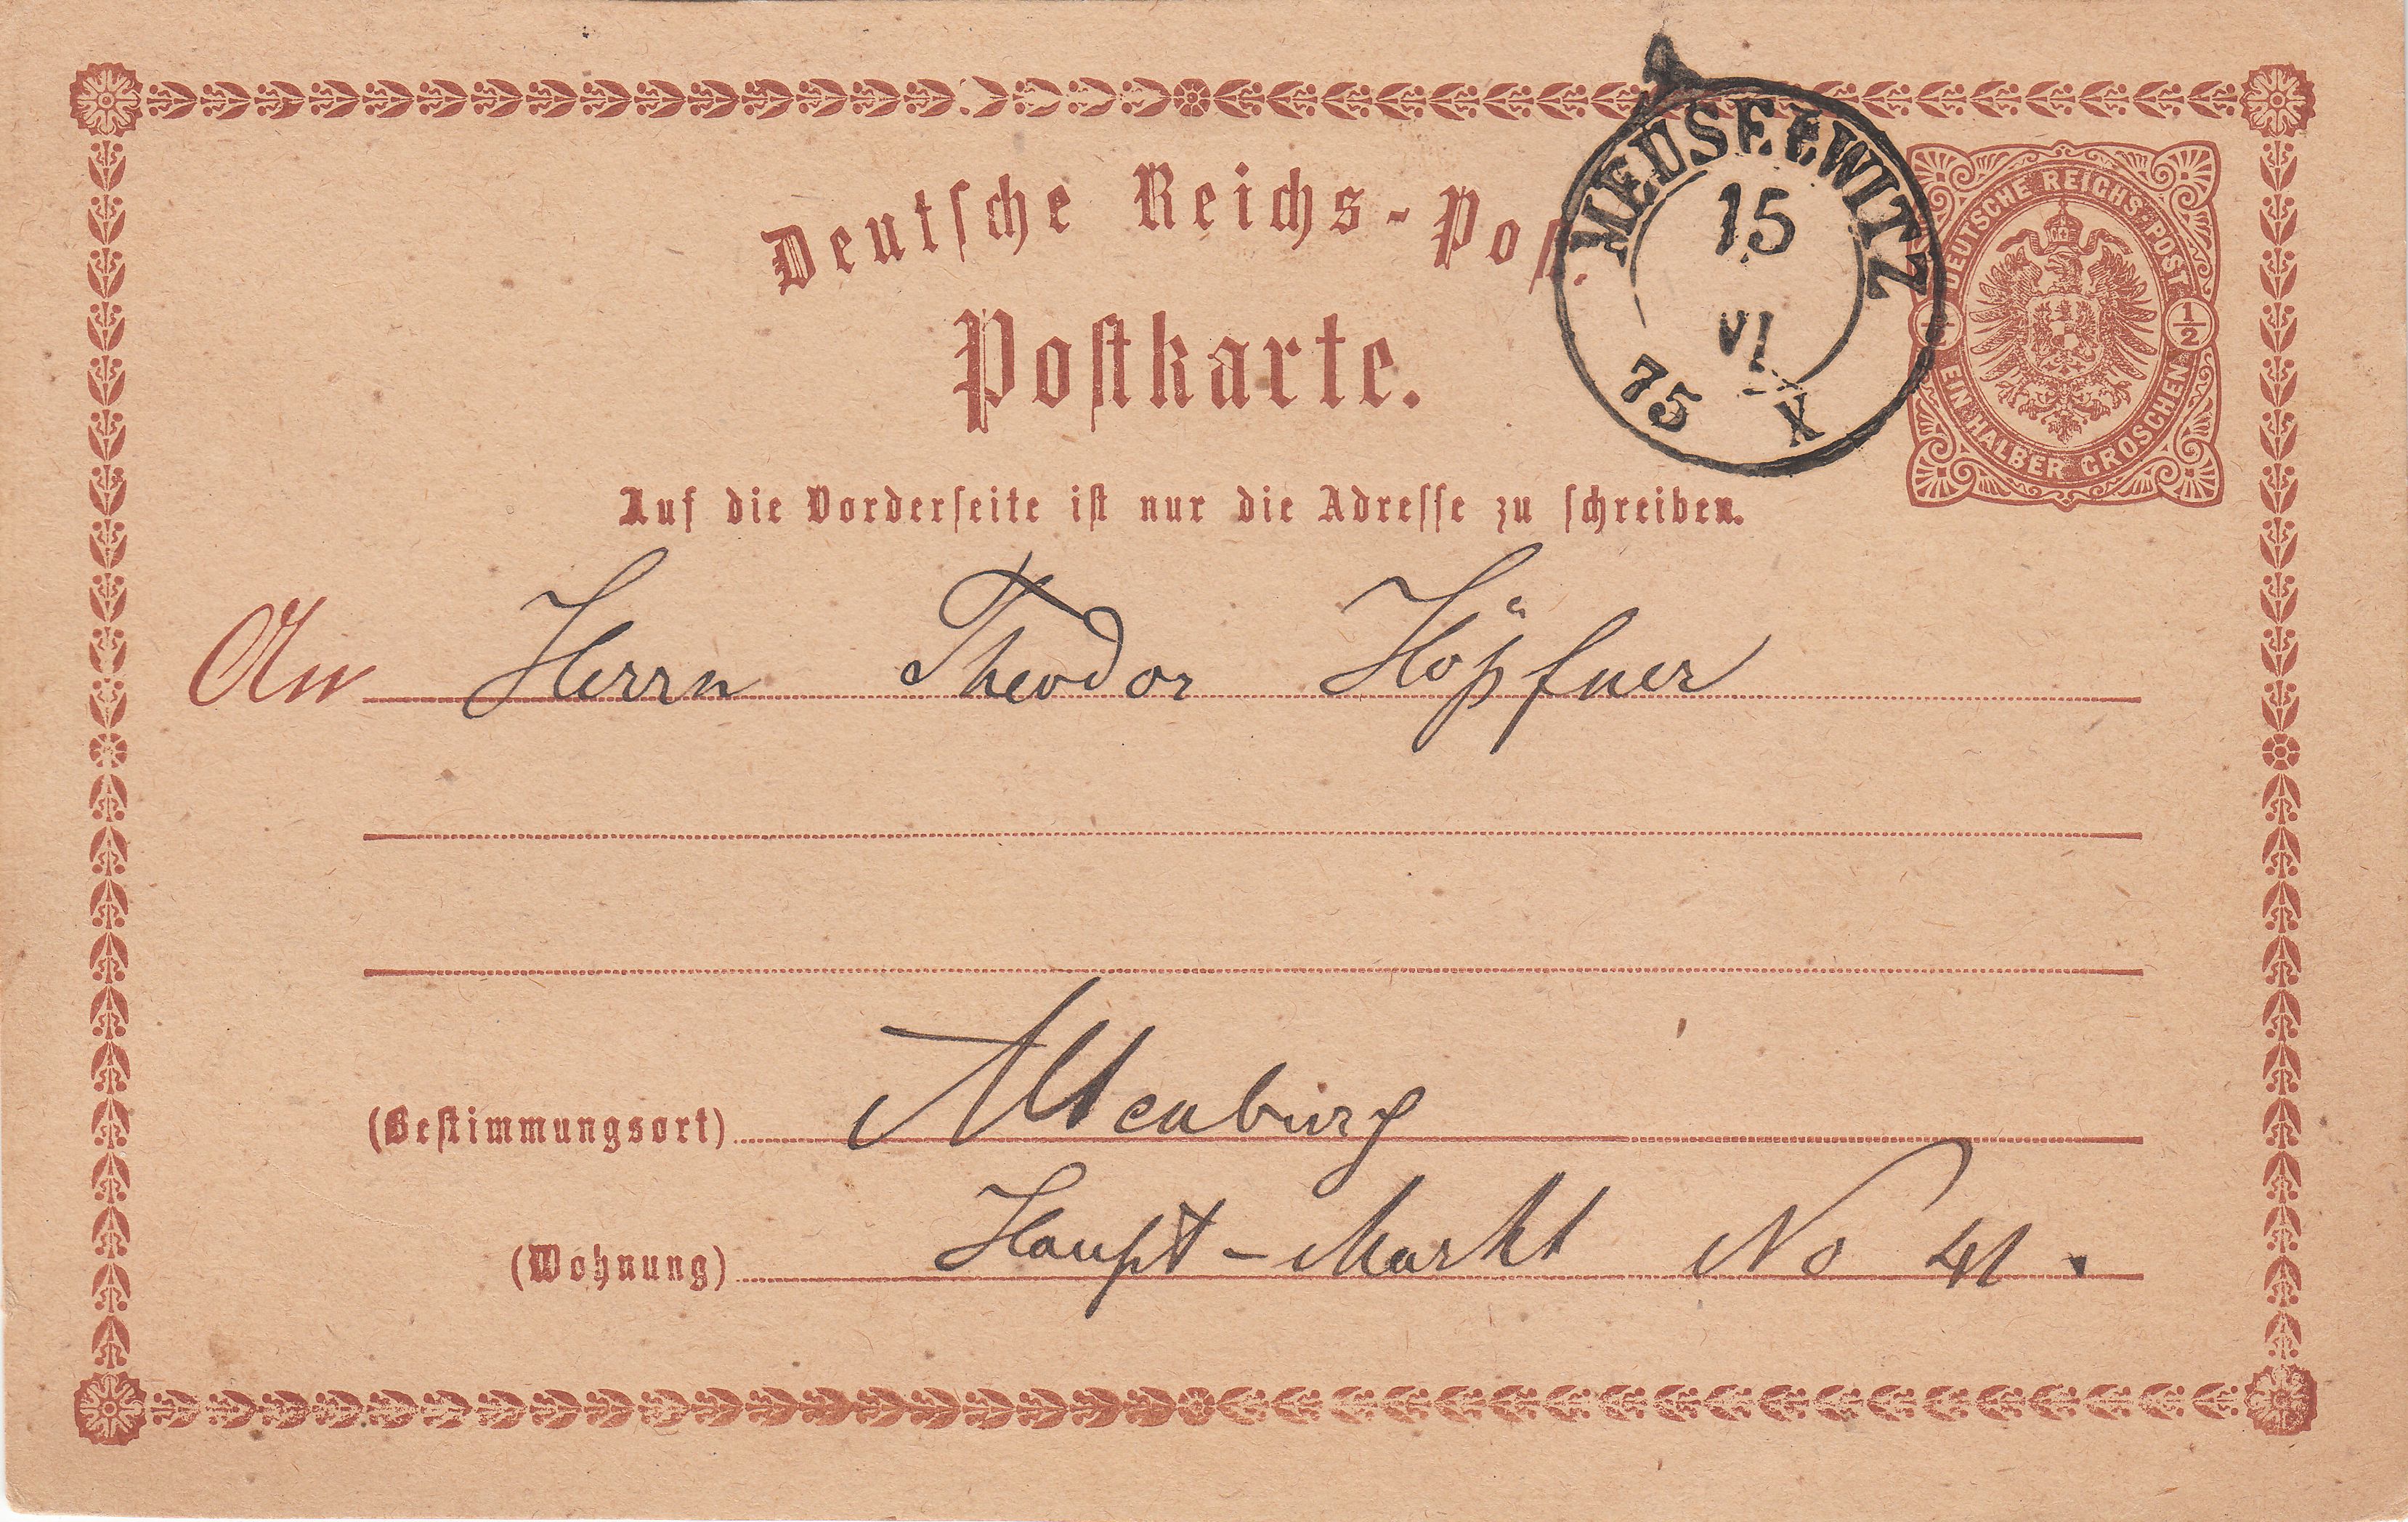 Deutsche Reichs-Post.
Postkarte.
MEUSELWITZ
15
VI
75 X
DEUTSCHE REICHS-POST
½ ½
EIN HALBER GROSCHEN
Auf die Vorderseite ist nur die Adresse zu schreiben.
An Herrn Theodor Höpfner
(Bestimmungsort) Altenburg
(Wohnung) Haupt-Markt No 41.